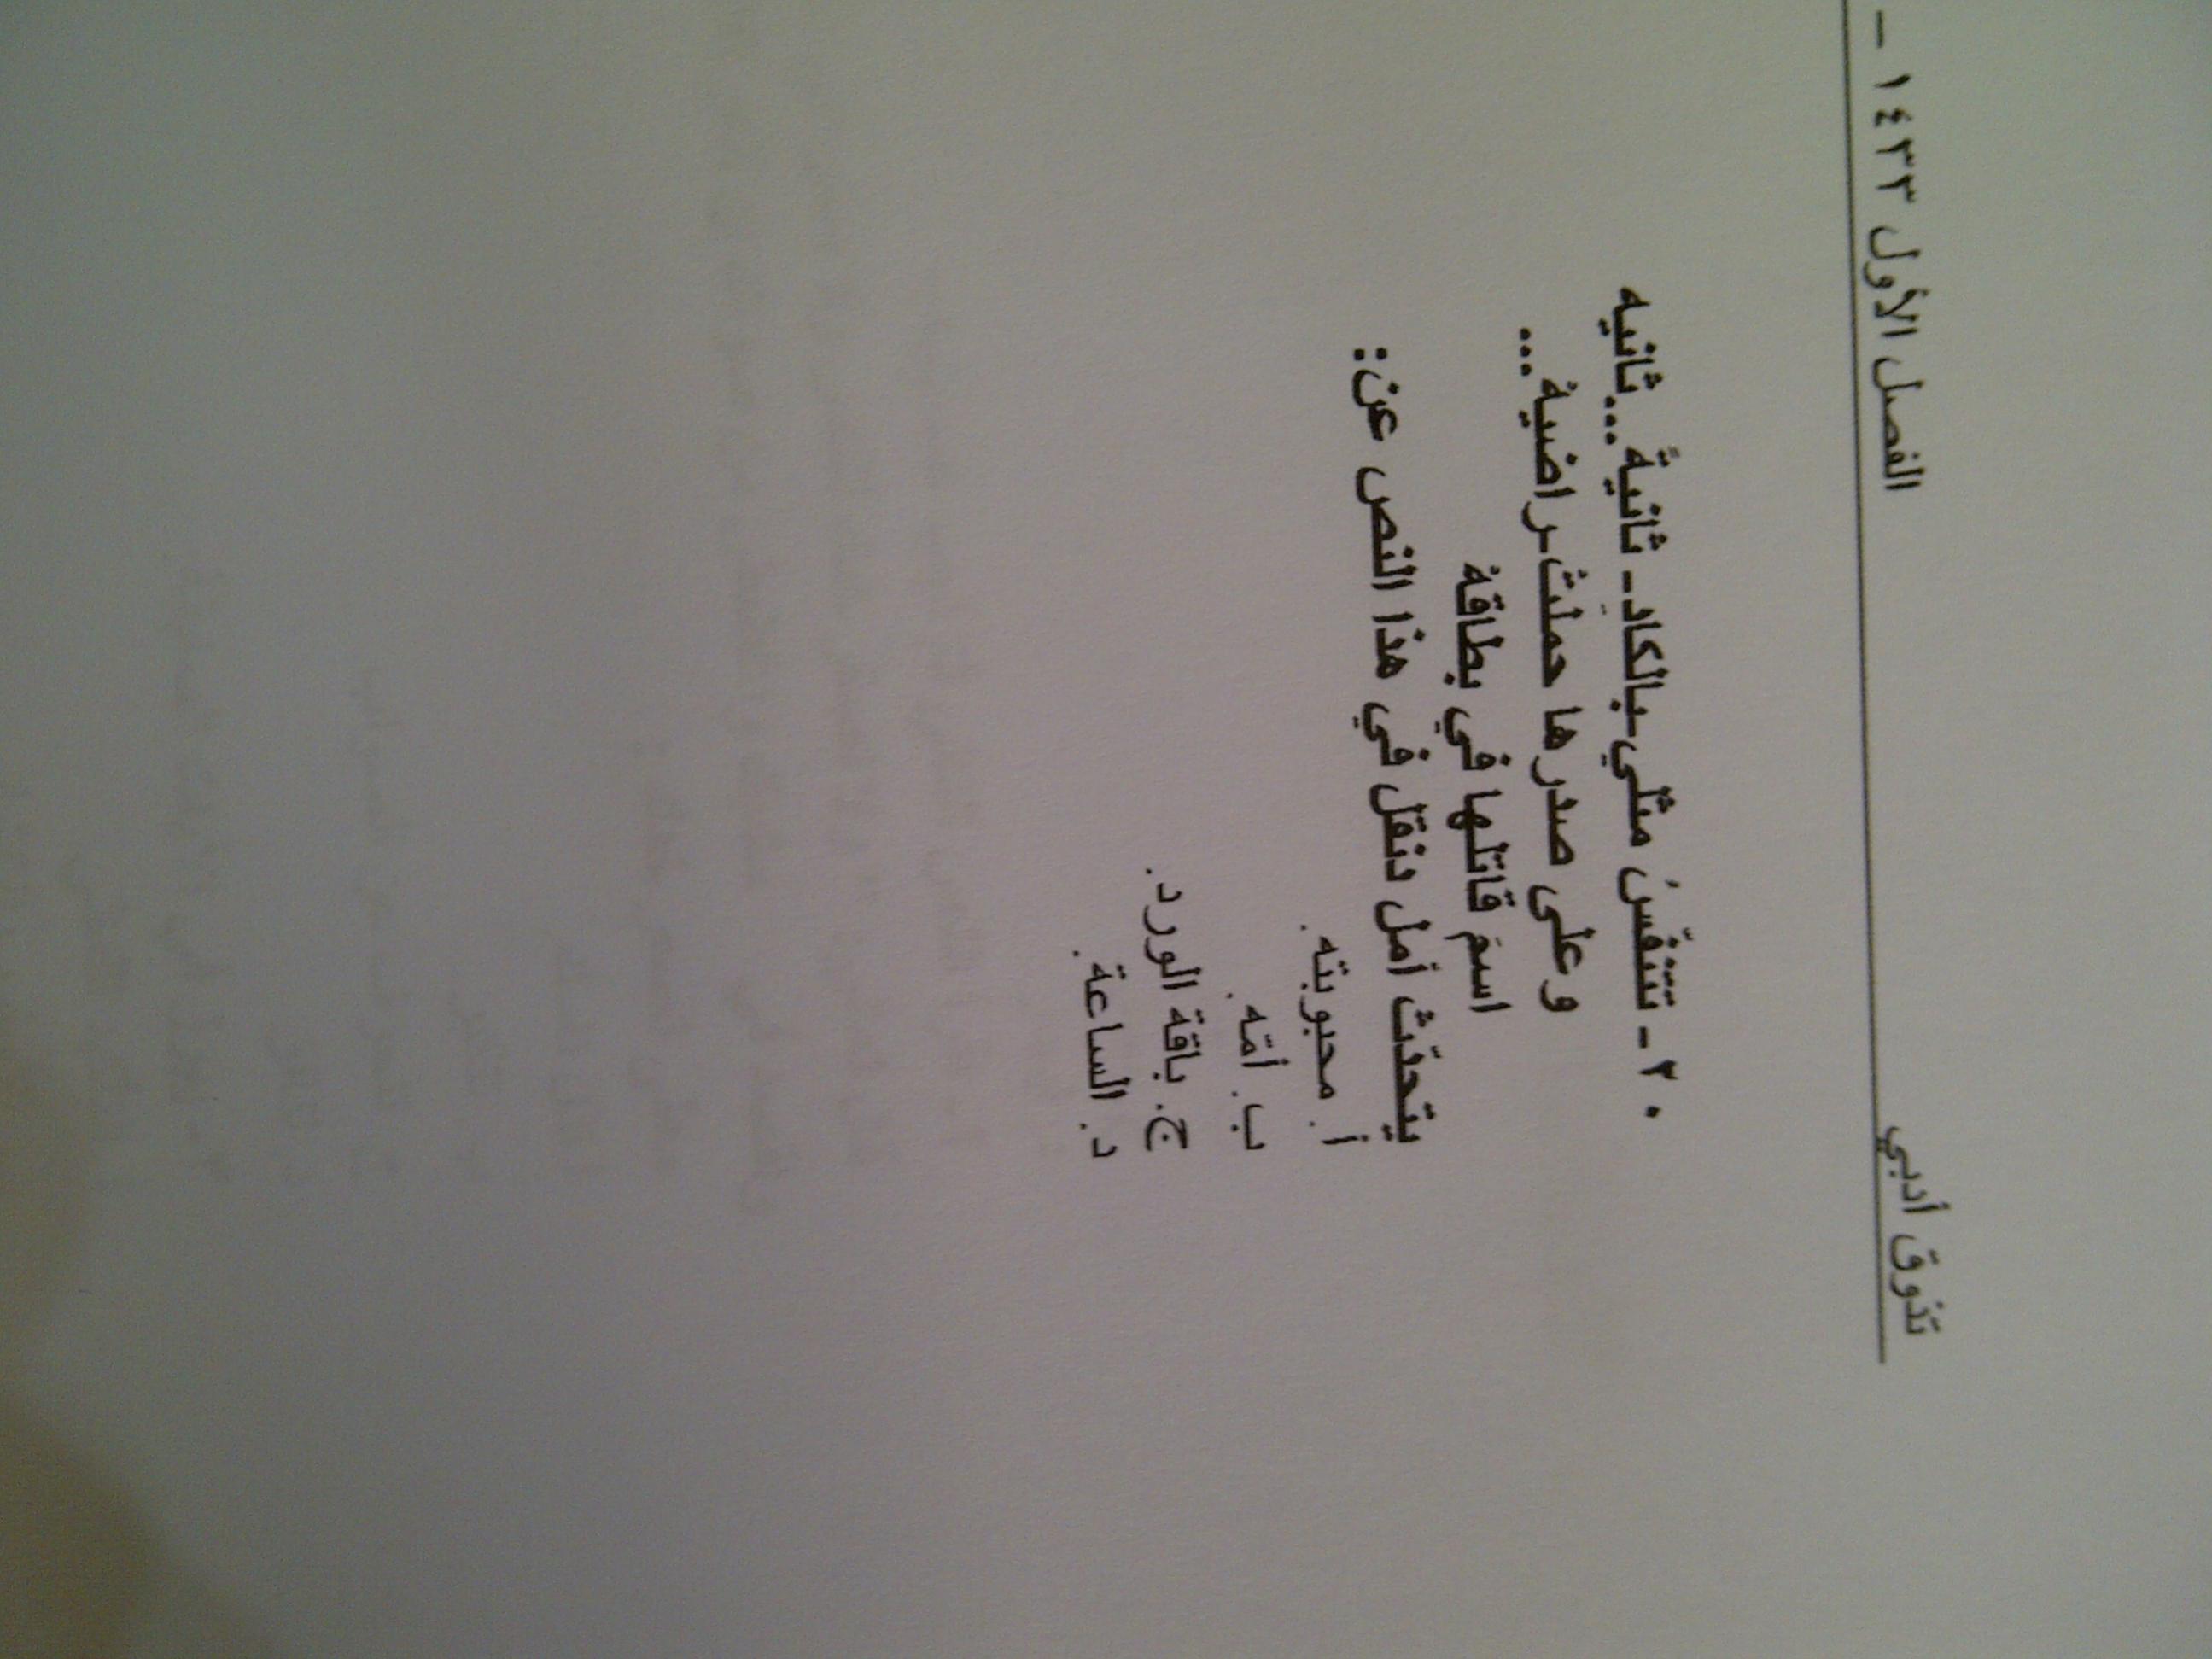 تذوق أدبي الفصل الأول ١٤٣٣ –
٢٠ - تتنفّسُ مثلي-بالكادِ- ثانيةً...ثانيه
وعلى صدرها حملتْ-راضيهْ...
اسمَ قاتلها في بطاقهْ
يتحدّث أمل دنقل في هذا النص عن:
أ. محبوبته.
ب. أمّه.
ج. باقة الورد.
د. الساعة.